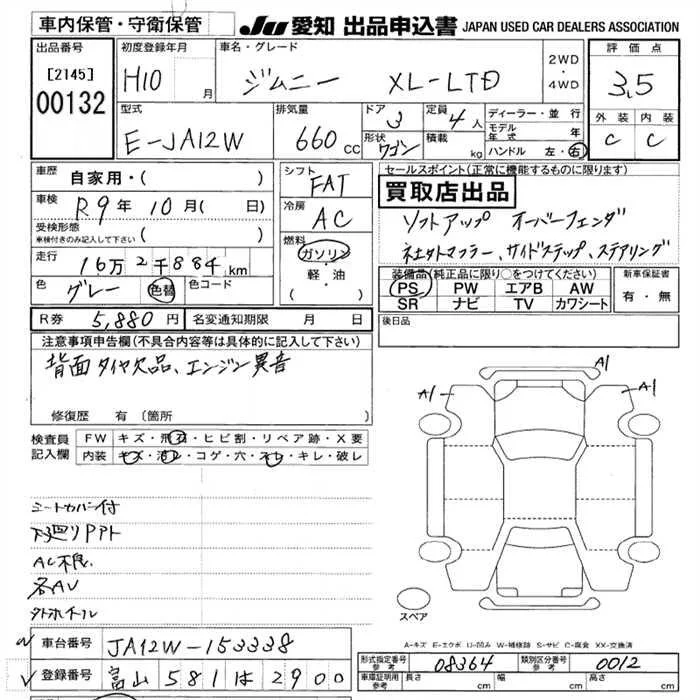 車内保管・守衛保管
JU 愛知 出品申込書 JAPAN USED CAR DEALERS ASSOCIATION
出品番号
[2145]
00132
初度登録年月
H10 月
車名・グレード
ジムニー XL-LTD
2WD
・
4WD
評価点
3.5
外装 内装
C C
型式
E-JA12W
排気量
660 CC
ドア 3
形状 ワゴン
定員 4人
積載 kg
ディーラー・並行
モデル年式 年
ハンドル 左・右
車歴 自家用・( )
車検 R9年10月( 日)
受検形態
車検付きのみ記入して下さい ( )
走行 16万2千884km
色 グレー 色替 色コード
シフト FAT
冷房 AC
燃料
ガソリン
軽・油
( )
セールスポイント(正常に機能するものに限ります)
買取店出品
ソフトアップ オーバーフェンダ
社外マフラー、サイドステップ、ステアリング
装備品(純正品に限り○をつけてください)
PS PW エアB AW
SR ナビ TV カワシート
新車保証書
有・無
R券 5,880円 名変通知期限 月 日
後日品
注意事項申告欄(不具合内容等は具体的に記入して下さい)
背面タイヤ欠品、エンジン異音
修復歴 有(箇所 )
検査員記入欄
FW キズ・飛石・ヒビ割・リペア跡・X要
内装 キズ・汚レ・コゲ・穴・スレ・キレ・破レ
A1
A1
A1
シートカバー付
下廻りPアト
AC不良
各AU
外ホイール
スペア
A-キズ E-エクボ U-凹み W-補修跡 S-サビ C-腐食 XX-交換済
車台番号 JA12W-153338
登録番号 富山 581 は 2900
形式指定番号 参考 08364
類別区分番号 参考 0012
車庫証明用 参考 長さ cm 幅 cm 高さ cm